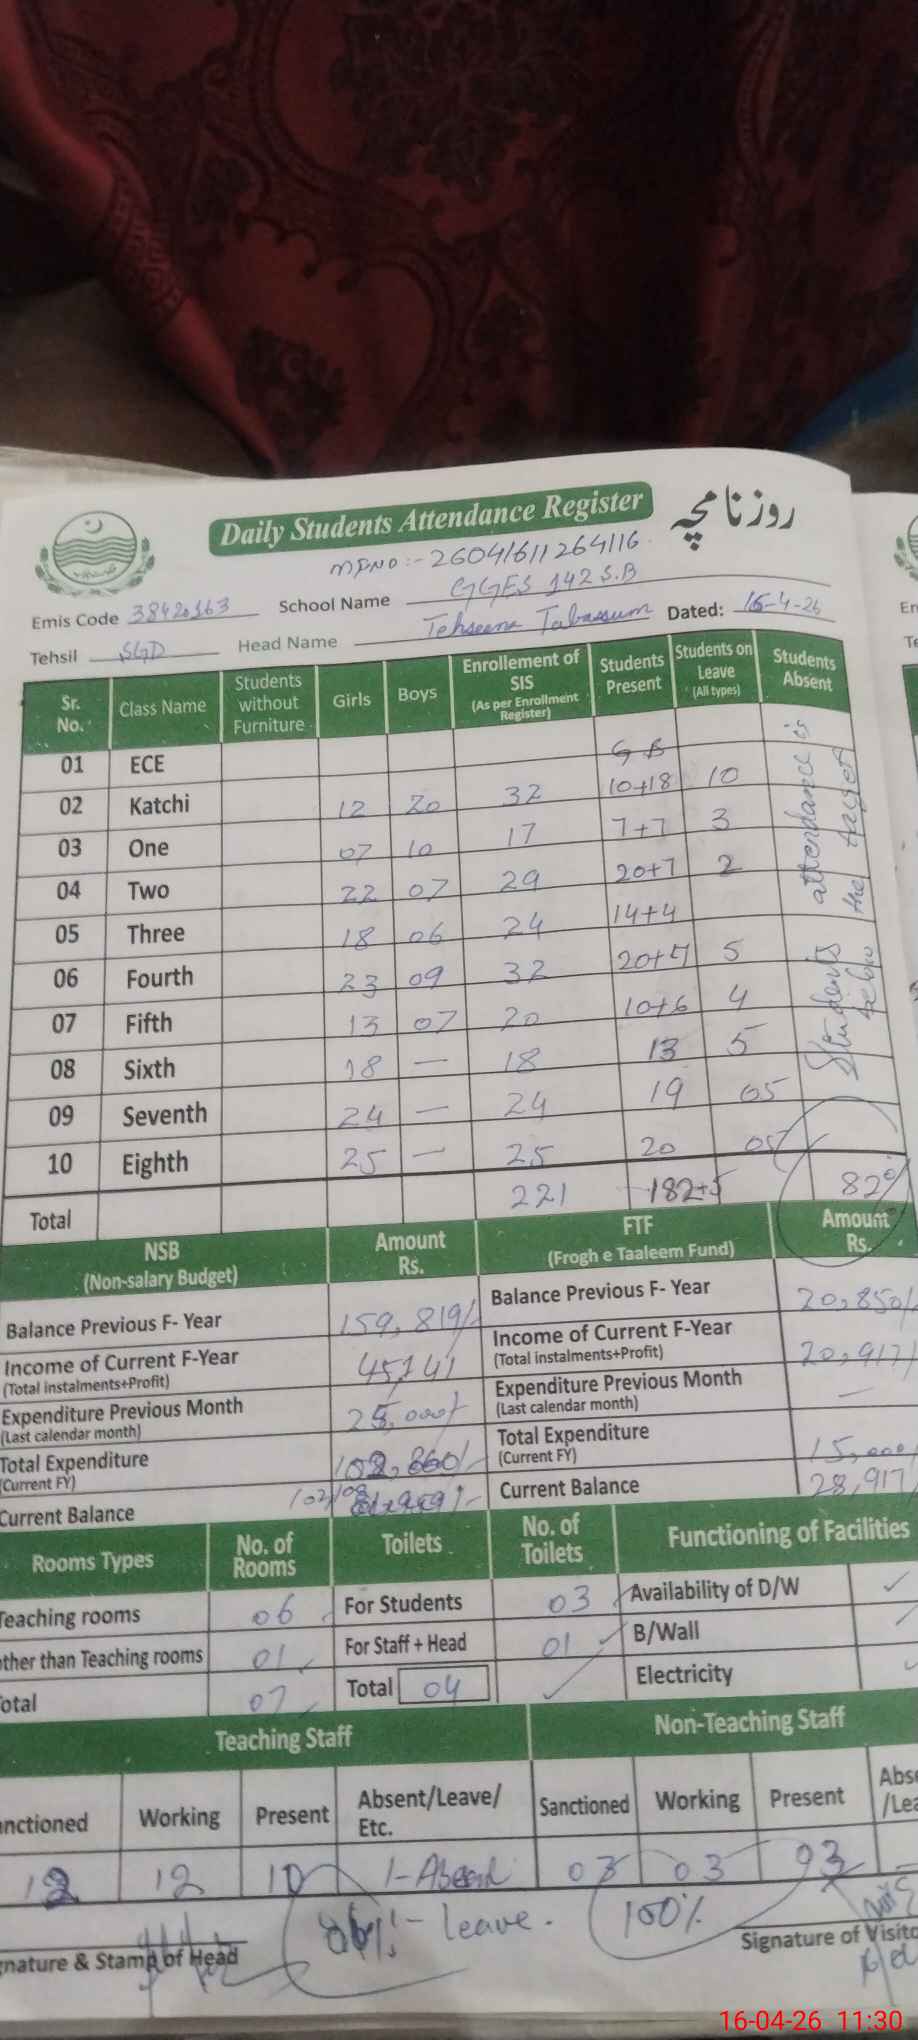 Daily Students Attendance Register
روزنامچہ
MPNO:- 26041611264116
Emis Code 38420163 School Name GGES 142 S.B
Tehsil SGD Head Name Tehseena Tabassum Dated: 16-4-26
Sr. No. Class Name Students without Furniture Girls Boys Enrollement of SIS (As per Enrollment Register) Students Present Students on Leave (All types) Students Absent
01 ECE G B
02 Katchi 12 20 32 10+18 10
03 One 07 10 17 7+7 3
04 Two 22 07 29 20+7 2
05 Three 18 06 24 14+4
06 Fourth 23 09 32 20+7 5
07 Fifth 13 07 20 10+6 4
08 Sixth 18 — 18 13 5
09 Seventh 24 — 24 19 05
10 Eighth 25 — 25 20 05
Total 221 182+5 82%
Students attendance is
below the target
NSB (Non-salary Budget) Amount Rs. FTF (Frogh e Taaleem Fund) Amount Rs.
Balance Previous F- Year 159,819/- Balance Previous F- Year 20,850/-
Income of Current F-Year (Total instalments+Profit) 45141 Income of Current F-Year (Total instalments+Profit) 20,917/
Expenditure Previous Month (Last calendar month) 25,000/- Expenditure Previous Month (Last calendar month) —
Total Expenditure (Current FY) Total Expenditure (Current FY) 15,000/
Current Balance Current Balance 28,917/
Rooms Types No. of Rooms Toilets No. of Toilets Functioning of Facilities
Teaching rooms 06 For Students 03 Availability of D/W ✓
ther than Teaching rooms 01 For Staff + Head 01 B/Wall
otal 07 Total 04 Electricity
Teaching Staff Non-Teaching Staff
nctioned Working Present Absent/Leave/Etc. Sanctioned Working Present Abse /Lea
12 12 10 1-Absent 03 03 03 —
1- leave. 100%
gnature & Stamp of Head Signature of Visito
16-04-26 11:30